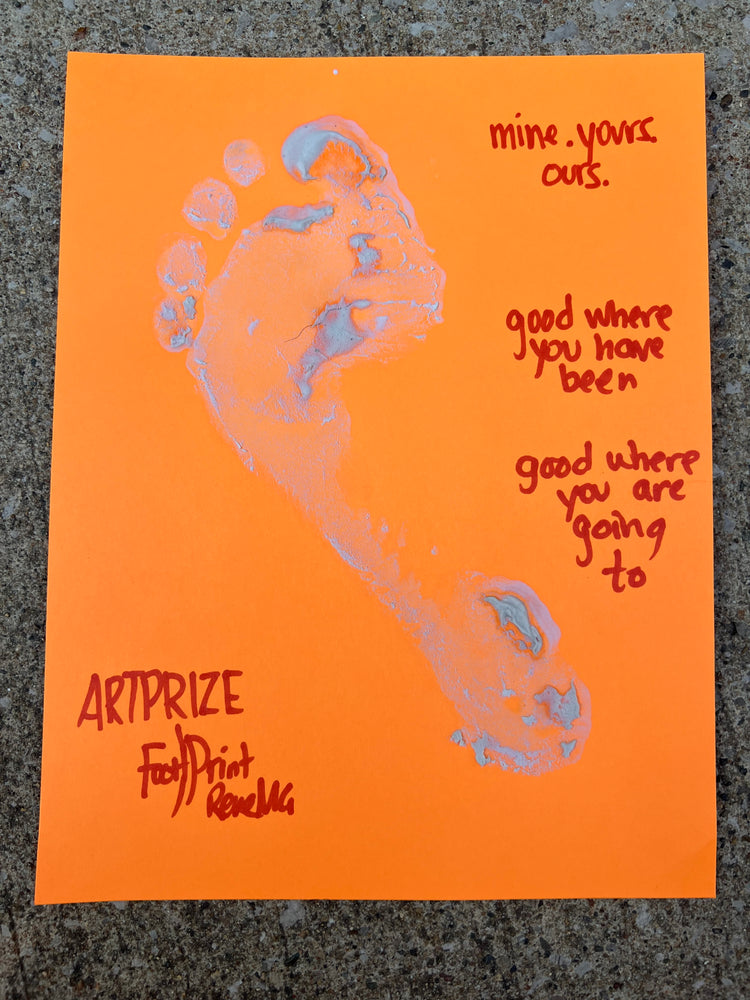 mine. yours.
ours.
good where
you have
been
good where
you are
going
to
ARTPRIZE
Foot//Print